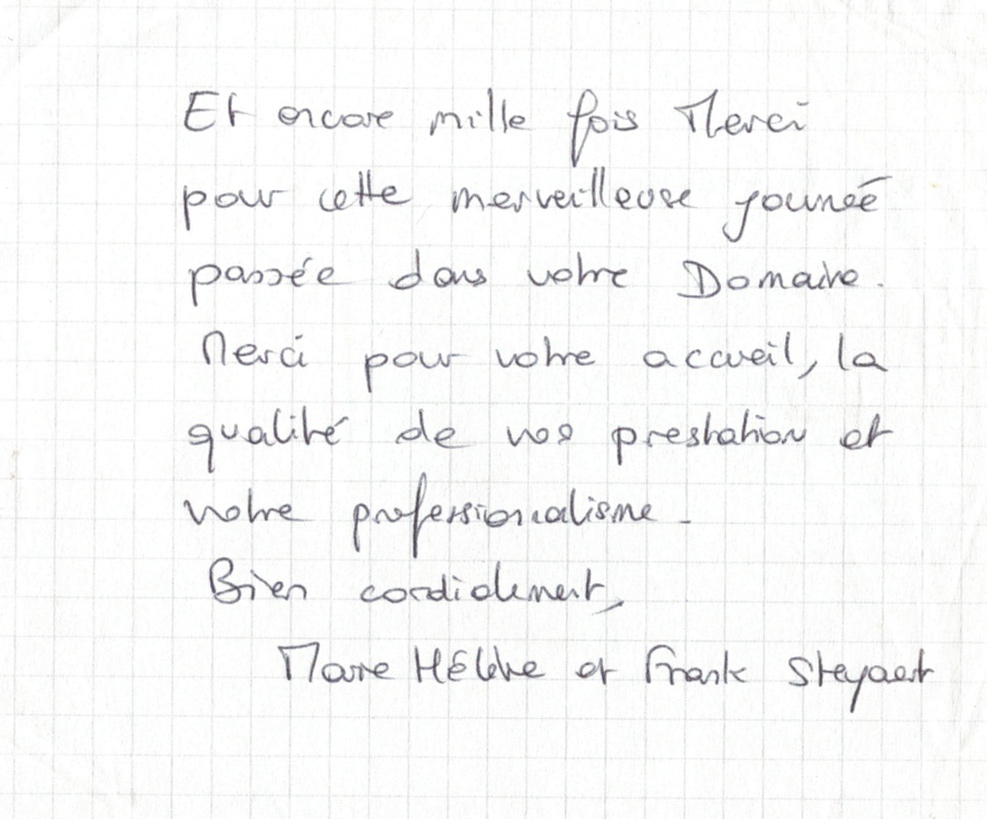 Et encore mille fois Merci
pour cette merveilleuse journée
passée dans votre Domaine.
Merci pour votre accueil, la
qualité de vos prestation et
votre professionalisme.
Bien cordialement,
Marie Hélène et Frank Steyaert